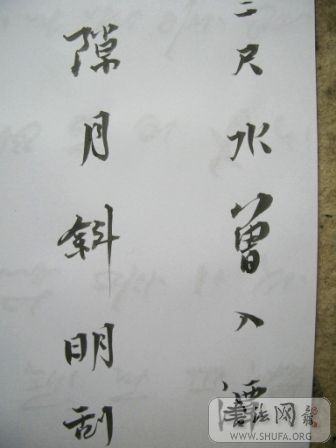 尺水曾入
隙月斜明刮
法网
WWW.SHUFA.ORG